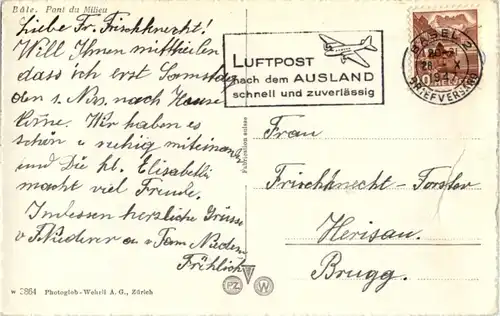 Bâle. Pont du Milieu
Liebe Fr. Frischknecht!
Will Ihnen mitteilen
dass ich erst Samstag
den 1. Nov. nach Hause
kome. Wir haben es
schön u ruhig miteinand
und Die kl. Elisabethli
macht viel Freude.
Indessen herzliche Grüsse
v F. u Fam.
Fröhlich
LUFTPOST
nach dem AUSLAND
schnell und zuverlässig
BASEL 2
28. X
BRIEFVERSAND
Frau
Frischknecht-Forster
Herisau.
Brugg.
w 3864 Photoglob-Wehrli A. G., Zürich
PZ W